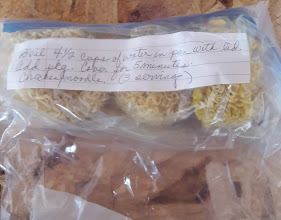 Boil 4 1/2 cups of water in pan with lid.
Add pkg. Cover for 5 minutes.
Chicken noodle. (3 servings)